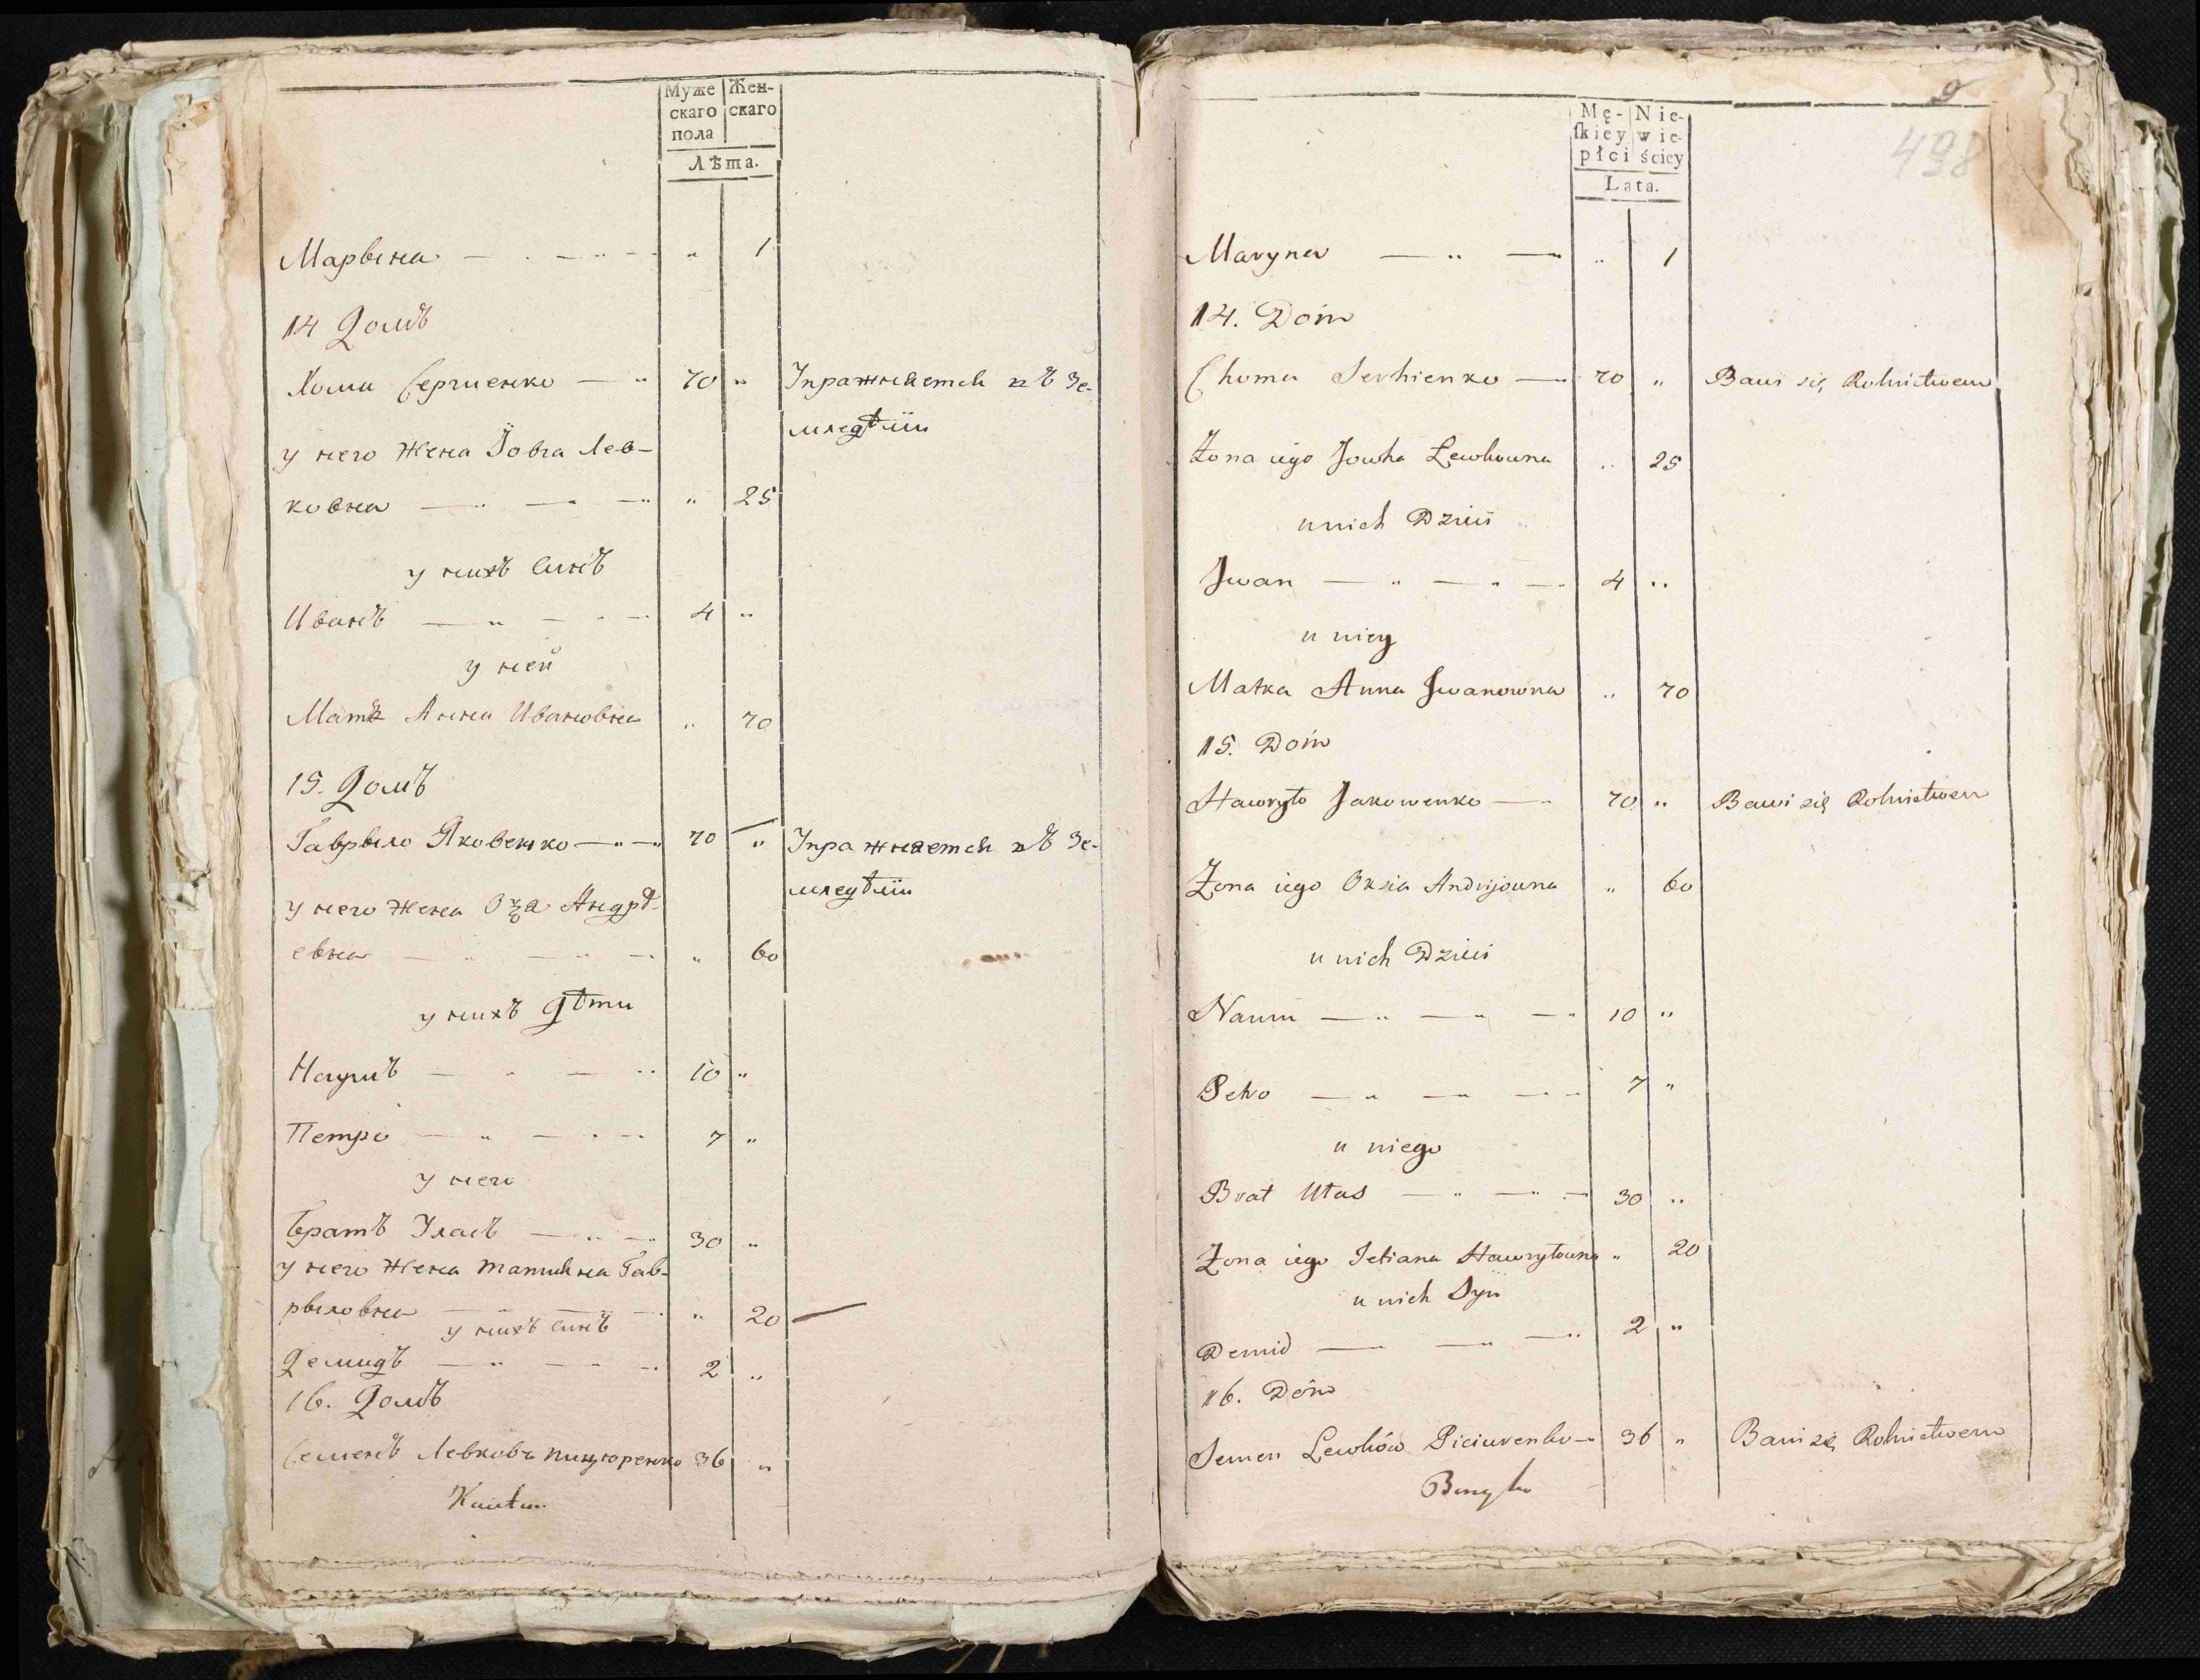 Муже Жен-
скаго скаго
пола
Лѣта.
Марвина — „ 1
14 Домъ
Хома Сергиенко — „ 70 „ Упражняется въ Зе-
мледѣліи
у него Жена Йовга Лев-
ковна — „ 25
у нихъ Синъ
Иванъ — 4 „
у ней
Матъ Анна Ивановна „ 70
15. Домъ
Гаврыло Яковенко — 70 „ Упражняется въ Зе-
мледѣліи
у него Жена Андрѣ-
евна — „ 60
у нихъ Дѣти
Наумъ — 10 „
Петро — 7 „
у него
Братъ Уласъ — 30 „
у него Жена Татияна Гав-
рыловна — „ 20 —
у нихъ Синъ
Демидъ — 2 „
16. Домъ
Семенъ Левковъ Пицюренко 36 „
9
498
Mę- Nie-
ſkiey wie-
płci ściey
Lata.
Maryna — „ 1
14. Dóm
Choma Serhienko — 70 „ Bawi się Rolnictwem
Żona iego Jowha Lewkowna „ 25
u nich Dzieci
Jwan — 4 „
u niey
Matka Anna Jwanowna „ 70
15. Dóm
Hawryło Jakowenko — 70 „ Bawi się Rolnictwem
Żona iego Oxia Andrijowna „ 60
u nich Dzieci
Naum — 10 „
Petro — 7 „
u niego
Brat Ułas — 30 „
Żona iego Tetiana Hawryłowna „ 20
u nich Syn
Demid — 2 „
16. Dóm
Semen Lewków Piciurenko — 36 „ Bawi się Rolnictwem